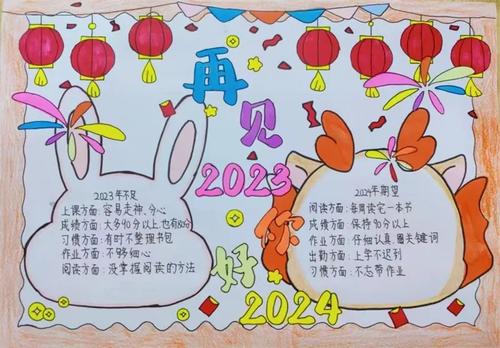 再见
2023
你好
2024
2023年不足
上课方面:容易走神,分心
成绩方面:大多90分以上,也有80分
习惯方面:有时不整理书包
作业方面:不够细心
阅读方面:没掌握阅读的方法
2024年期望
阅读方面:每周读完一本书
成绩方面:保持90分以上
作业方面:仔细认真,圈关键词
出勤方面:上学不迟到
习惯方面:不忘带作业